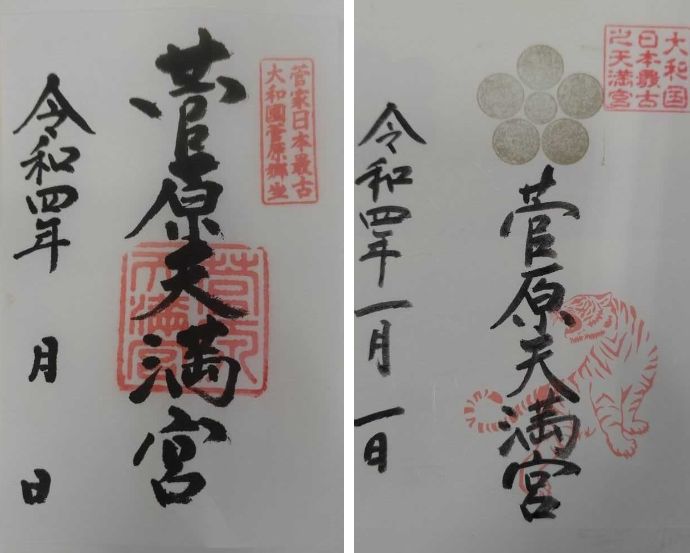 菅家日本最古
大和國菅原郷坐
菅原天満宮
令和四年 月 日
大和国
日本最古
之天満宮
菅原天満宮
令和四年一月一日